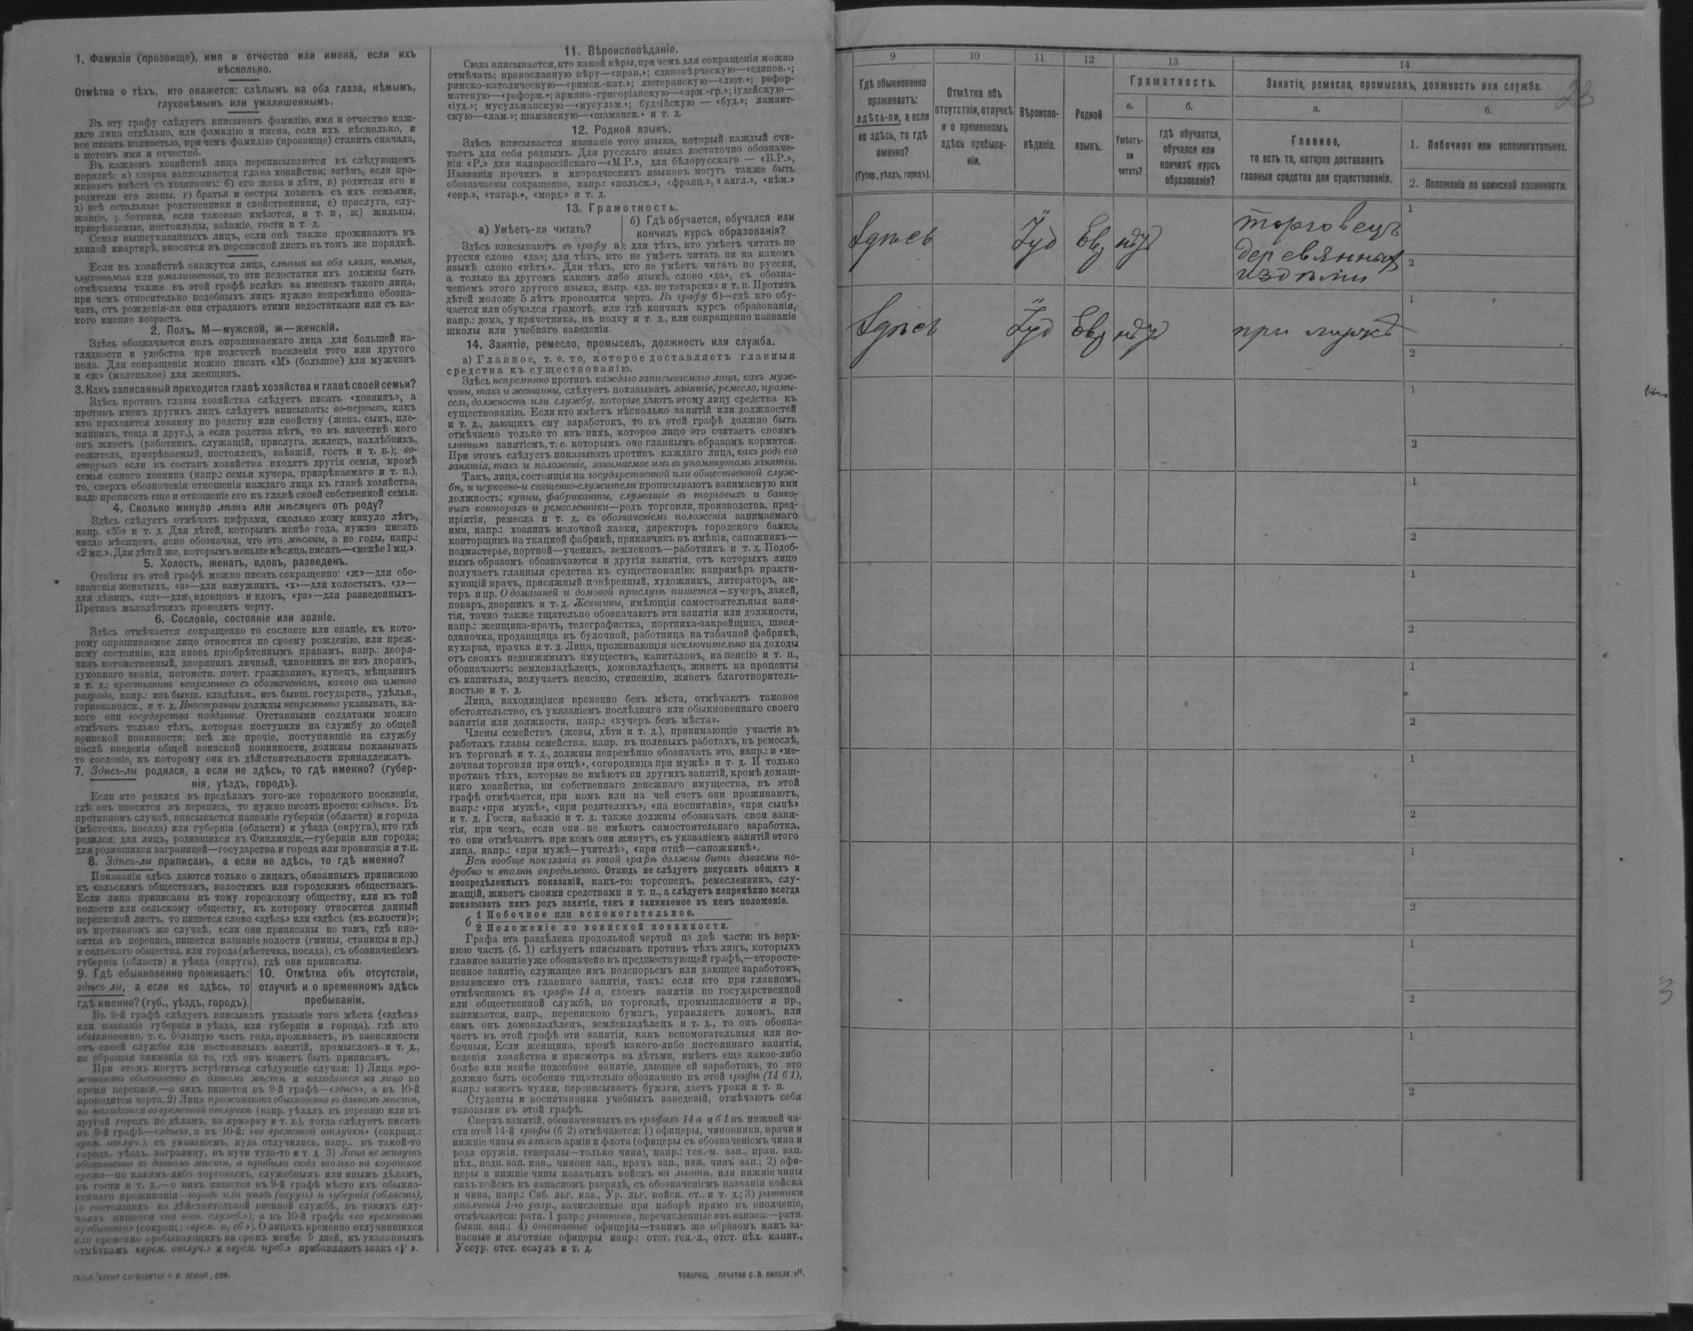 1. Фамилія (прозвище), имя и отчество или имена, если ихъ
нѣсколько.
Отмѣтка о тѣхъ, кто окажется: слѣпымъ на оба глаза, нѣмымъ,
глухонѣмымъ или умалишеннымъ.
Въ эту графу слѣдуетъ вписывать фамилію, имя и отчество каж-
даго лица отдѣльно, или фамилію и имена, если ихъ нѣсколько, и
все писать полностью, при чемъ фамилію (прозвище) ставить сначала,
а потомъ имя и отчество.
Въ каждомъ хозяйствѣ лица переписываются въ слѣдующемъ
порядкѣ: а) сперва записывается глава хозяйства; затѣмъ, если про-
живаютъ вмѣстѣ съ хозяиномъ: б) его жена и дѣти, в) родители его и
родители его жены, г) братья и сестры хозяевъ съ ихъ семьями,
д) всѣ остальные родственники и свойственники, е) прислуга, слу-
жащіе, работники, если таковые имѣются, и т. п., ж) жильцы,
призрѣваемые, постояльцы, заѣзжіе, гости и т. д.
Семьи вышеуказанныхъ лицъ, если онѣ также проживаютъ въ
данной квартирѣ, вносятся въ переписной листъ въ томъ же порядкѣ.
Если въ хозяйствѣ окажутся лица, слѣпыя на оба глаза, нѣмыя,
глухонѣмыя или умалишенныя, то эти недостатки ихъ должны быть
отмѣчаемы также въ этой графѣ вслѣдъ за именемъ такого лица,
при чемъ относительно подобныхъ лицъ нужно непремѣнно обозна-
чать, отъ рожденія-ли они страдаютъ этими недостатками или съ ка-
кого именно возраста.
2. Полъ. М—мужской, ж—женскій.
Здѣсь обозначается полъ опрашиваемаго лица для большей на-
глядности и удобства при подсчетѣ населенія того или другого
пола. Для сокращенія можно писать «М» (большое) для мужчинъ
и «ж» (маленькое) для женщинъ.
3. Какъ записанный приходится главѣ хозяйства и главѣ своей семьи?
Здѣсь противъ главы хозяйства слѣдуетъ писать «хозяинъ», а
противъ именъ другихъ лицъ слѣдуетъ вписывать: во-первыхъ, какъ
кто приходится хозяину по родству или свойству (жена, сынъ, пле-
мянникъ, теща и друг.), а если родства нѣтъ, то въ качествѣ кого
онъ живетъ (работникъ, служащій, прислуга, жилецъ, нахлѣбникъ,
сожитель, призрѣваемый, постоялецъ, заѣзжій, гость и т. п.); во-
вторыхъ если въ составъ хозяйства входятъ другія семьи, кромѣ
семьи самого хозяина (напр.: семья кучера, призрѣваемаго и т. п.),
то, сверхъ обозначенія отношенія каждаго лица къ главѣ хозяйства,
надо прописать еще и отношеніе его къ главѣ своей собственной семьи.
4. Сколько минуло лѣтъ или мѣсяцевъ отъ роду?
Здѣсь слѣдуетъ отмѣчать цифрами, сколько кому минуло лѣтъ,
напр. «35» и т. д. Для дѣтей, которымъ менѣе года, нужно писать
число мѣсяцевъ, ясно обозначая, что это мѣсяцы, а не годы, напр.:
«2 мц.». Для дѣтей же, которымъ меньше мѣсяца, писать—«менѣе 1 мц.».
5. Холостъ, женатъ, вдовъ, разведенъ.
Отвѣты въ этой графѣ можно писать сокращенно: «ж»—для обо-
значенія женатыхъ, «з»—для замужнихъ, «х»—для холостыхъ, «д»—
для дѣвицъ, «вд»—для вдовцовъ и вдовъ, «рз»—для разведенныхъ.
Противъ малолѣтнихъ проводить черту.
6. Сословіе, состояніе или званіе.
Здѣсь отмѣчается сокращенно то сословіе или званіе, къ кото-
рому опрашиваемое лицо относится по своему рожденію, или преж-
нему состоянію, или вновь пріобрѣтеннымъ правамъ, напр.: дворя-
нинъ потомственный, дворянинъ личный, чиновникъ не изъ дворянъ,
духовнаго званія, потомств. почет. гражданинъ, купецъ, мѣщанинъ
и т. д.; крестьянинъ непремѣнно съ обозначеніемъ, какого онъ именно
разряда, напр.: изъ бывш. владѣльч., изъ бывш. государств., удѣльн.,
горнозаводск., и т. д. Иностранцы должны непремѣнно указывать, ка-
кого они государства подданные. Отставными солдатами можно
отмѣчать только тѣхъ, которые поступили на службу до общей
воинской повинности; всѣ же прочіе, поступившіе на службу
послѣ введенія общей воинской повинности, должны показывать
то сословіе, къ которому они въ дѣйствительности принадлежатъ.
7. Здѣсь-ли родился, а если не здѣсь, то гдѣ именно? (губер-
нія, уѣздъ, городъ).
Если кто родился въ предѣлахъ того-же городского поселенія,
гдѣ онъ вносится въ перепись, то нужно писать просто: «здѣсь». Въ
противномъ случаѣ, вписывается названіе губерніи (области) и города
(мѣстечка, посада) или губерніи (области) и уѣзда (округа), кто гдѣ
родился; для лицъ, родившихся въ Финляндіи,—губерніи или города;
для родившихся заграницей—государства и города или провинціи и т.п.
8. Здѣсь-ли приписанъ, а если не здѣсь, то гдѣ именно?
Показанія здѣсь даются только о лицахъ, обязанныхъ припискою
къ сельскимъ обществамъ, волостямъ или городскимъ обществамъ.
Если лица приписаны къ тому городскому обществу, или къ той
волости или сельскому обществу, къ которому относится данный
переписной листъ, то пишется слово «здѣсь» или «здѣсь (къ волости)»;
въ противномъ же случаѣ, если они приписаны не тамъ, гдѣ вно-
сятся въ перепись, пишется названіе волости (гмины, станицы и пр.)
и сельскаго общества, или города (мѣстечка, посада), съ обозначеніемъ
губерніи (области) и уѣзда (округа), гдѣ они приписаны.
9. Гдѣ обыкновенно проживаетъ:
здѣсь ли, а если не здѣсь, то
гдѣ именно? (губ., уѣздъ, городъ).
10. Отмѣтка объ отсутствіи,
отлучкѣ и о временномъ здѣсь
пребываніи.
Въ 9-й графѣ слѣдуетъ вписывать указаніе того мѣста («здѣсь»
или названіе губерніи и уѣзда, или губерніи и города), гдѣ кто
обыкновенно, т. е. большую часть года, проживаетъ, въ зависимости
отъ своей службы или постоянныхъ занятій, промысловъ и т. д.,
не обращая вниманія на то, гдѣ онъ можетъ быть приписанъ.
При этомъ могутъ встрѣтиться слѣдующіе случаи: 1) Лица про-
живаютъ обыкновенно въ данномъ мѣстѣ и находятся на лицо во
время переписи,—о нихъ пишется въ 9-й графѣ—«здѣсь», а въ 10-й
проводится черта. 2) Лица проживаютъ обыкновенно въ данномъ мѣстѣ,
но находятся во временной отлучкѣ (напр. уѣхалъ въ деревню или въ
другой городъ по дѣламъ, на ярмарку и т. д.), тогда слѣдуетъ писать
въ 9-й графѣ—«здѣсь», а въ 10-й: «во временной отлучкѣ» (сокращ.:
врем. отлуч.), съ указаніемъ, куда отлучились, напр.. въ такой-то
городъ, уѣздъ, заграницу, въ пути туда-то и т. д. 3) Лица не живутъ
обыкновенно въ данномъ мѣстѣ, а прибыли сюда только на короткое
время—по какимъ-либо торговымъ, служебнымъ или инымъ дѣламъ,
въ гости и т. д.,—о нихъ пишется въ 9-й графѣ мѣсто ихъ обыкно-
веннаго проживанія—городъ или уѣздъ (округъ) и губернія (область),
(о состоящихъ на дѣйствительной военной службѣ, въ такихъ слу-
чаяхъ пишется «на воен. служб.»), а въ 10-й графѣ: «во временномъ
пребываніи» (сокращ.: «врем. преб.»). О лицахъ временно отлучившихся
или временно пребывающихъ на срокъ менѣе 5 дней, къ указаннымъ
отмѣткамъ «врем. отлуч.» и «врем. преб.» прибавляютъ знакъ «V».
11. Вѣроисповѣданіе.
Сюда вписывается, кто какой вѣры, при чемъ для сокращенія можно
отмѣчать: православную вѣру—«прав.»; единовѣрческую—«единов.»;
римско-католическую—«римск.-кат.»; лютеранскую—«лют.»; рефор-
матскую—«реформ.»; армяно-григоріанскую—«арм.-гр.»; іудейскую—
«іуд.»; мусульманскую—«мусульм.»; буддійскую — «буд.»; ламаит-
скую—«лам.»; шаманскую—«шаманск.» и т. д.
12. Родной языкъ.
Здѣсь вписывается названіе того языка, который каждый счи-
таетъ для себя роднымъ. Для русскаго языка достаточно обозначе-
нія «Р.» для малороссійскаго—«М.Р.», для бѣлорусскаго — «Б.Р.».
Названія прочихъ и инородческихъ языковъ могутъ также быть
обозначаемы сокращенно, напр.: «польск.», «франц.», «англ.», «нѣм.»
«евр.», «татар.», «морд.» и т. д.
13. Грамотность.
а) Умѣетъ-ли читать?
б) Гдѣ обучается, обучался или
кончилъ курсъ образованія?
Здѣсь вписываютъ въ графу а): для тѣхъ, кто умѣетъ читать по
русски слово «да»; для тѣхъ, кто не умѣетъ читать ни на какомъ
языкѣ слово «нѣтъ». Для тѣхъ, кто не умѣетъ читать по русски,
а только на другомъ какомъ либо языкѣ, слово «да», съ обозна-
ченіемъ этого другого языка, напр. «да, по татарски» и т. п. Противъ
дѣтей моложе 5 лѣтъ проводится черта. Въ графу б)—гдѣ кто обу-
чается или обучался грамотѣ, или гдѣ кончилъ курсъ образованія,
напр.: дома, у причетника, въ полку и т. д., или сокращенно названіе
школы или учебнаго заведенія.
14. Занятіе, ремесло, промыселъ, должность или служба.
а) Главное, т. е. то, которое доставляетъ главныя
средства къ существованію.
Здѣсь непремѣнно противъ каждаго записываемаго лица, какъ муж-
чины, такъ и женщины, слѣдуетъ показывать занятіе, ремесло, промы-
селъ, должность или службу, которые даютъ этому лицу средства къ
существованію. Если кто имѣетъ нѣсколько занятій или должностей
и т. д., дающихъ ему заработокъ, то въ этой графѣ должно быть
отмѣчаемо только то изъ нихъ, которое лицо это считаетъ своимъ
главнымъ занятіемъ, т. е. которымъ оно главнымъ образомъ кормится.
При этомъ слѣдуетъ показывать противъ каждаго лица, какъ родъ его
занятія, такъ и положеніе, занимаемое имъ въ упомянутомъ занятіи.
Такъ, лица, состоящія на государственной или общественной служ-
бѣ, и церковно-и священно-служители прописываютъ занимаемую ими
должность; купцы, фабриканты, служащіе въ торговыхъ и банко-
выхъ конторахъ и ремесленники—родъ торговли, производства, пред-
пріятія, ремесла и т. д. съ обозначеніемъ положенія занимаемаго
ими, напр.: хозяинъ мелочной лавки, директоръ городского банка,
конторщикъ на ткацкой фабрикѣ, приказчикъ въ имѣніи, сапожникъ—
подмастерье, портной—ученикъ, землекопъ—работникъ и т. д. Подоб-
нымъ образомъ обозначаются и другія занятія, отъ которыхъ лицо
получаетъ главныя средства къ существованію: напримѣръ практи-
кующій врачъ, присяжный повѣренный, художникъ, литераторъ, ак-
теръ и пр. О домашней и домовой прислугѣ пишется—кучеръ, лакей,
поваръ, дворникъ и т. д. Женщины, имѣющія самостоятельныя заня-
тія, точно также тщательно обозначаютъ эти занятія или должности,
напр.: женщина-врачъ, телеграфистка, портниха-закройщица, швея-
одиночка, продавщица въ булочной, работница на табачной фабрикѣ,
кухарка, прачка и т. д. Лица, проживающія исключительно на доходы
отъ своихъ недвижимыхъ имуществъ, капиталовъ, на пенсію и т. п.,
обозначаютъ: землевладѣлецъ, домовладѣлецъ, живетъ на проценты
съ капитала, получаетъ пенсію, стипендію, живетъ благотворитель-
ностью и т. д.
Лица, находящіяся временно безъ мѣста, отмѣчаютъ таковое
обстоятельство, съ указаніемъ послѣдняго или обыкновеннаго своего
занятія или должности, напр.: «кучеръ безъ мѣста».
Члены семействъ (жены, дѣти и т. д.), принимающіе участіе въ
работахъ главы семейства, напр. въ полевыхъ работахъ, въ ремеслѣ,
въ торговлѣ и т. д., должны непремѣнно обозначать это, напр.: и «ме-
лочная торговля при отцѣ», «огородница при мужѣ» и т. д. И только
противъ тѣхъ, которые не имѣютъ ни другихъ занятій, кромѣ домаш-
няго хозяйства, ни собственнаго денежнаго имущества, въ этой
графѣ отмѣчается, при комъ или на чей счетъ они проживаютъ,
напр.: «при мужѣ», «при родителяхъ», «на воспитаніи», «при сынѣ»
и т. д. Гости, заѣзжіе и т. д. также должны обозначать свои заня-
тія, при чемъ, если они не имѣютъ самостоятельнаго заработка,
то они отмѣчаютъ при комъ они живутъ, съ указаніемъ занятій этого
лица, напр.: «при мужѣ—учителѣ», «при отцѣ—сапожникѣ».
Всѣ вообще показанія въ этой графѣ должны быть даваемы по-
дробно и вполнѣ опредѣленно. Отнюдь не слѣдуетъ допускать общихъ и
неопредѣленныхъ показаній, какъ-то: торговецъ, ремесленникъ, слу-
жащій, живетъ своими средствами и т. п., а слѣдуетъ непремѣнно всегда
показывать какъ родъ занятія, такъ и занимаемое въ немъ положеніе.
б
1 Побочное или вспомогательное.
2 Положеніе по воинской повинности.
Графа эта раздѣлена продольной чертой на двѣ части: въ верх-
нюю часть (б. 1) слѣдуетъ вписывать противъ тѣхъ лицъ, которыхъ
главное занятіе уже обозначено въ предшествующей графѣ,—второсте-
пенное занятіе, служащее имъ подспорьемъ или дающее заработокъ,
независимо отъ главнаго занятія, такъ: если кто при главномъ,
отмѣченномъ въ графѣ 14 а, своемъ занятіи по государственной
или общественной службѣ, по торговлѣ, промышленности и пр.,
занимается, напр., перепискою бумагъ, управляетъ домомъ, или
самъ онъ домовладѣлецъ, землевладѣлецъ и т. д., то онъ обозна-
чаетъ въ этой графѣ эти занятія, какъ вспомогательныя или по-
бочныя. Если женщина, кромѣ какого-либо постояннаго занятія,
веденія хозяйства и присмотра за дѣтьми, имѣетъ еще какое-либо
болѣе или менѣе подсобное занятіе, дающее ей заработокъ, то это
должно быть особенно тщательно обозначено въ этой графѣ (14 б 1),
напр.: вяжетъ чулки, переписываетъ бумаги, даетъ уроки и т. п.
Студенты и воспитанники учебныхъ заведеній, отмѣчаютъ себя
таковыми въ этой графѣ.
Сверхъ занятій, обозначенныхъ въ графахъ 14 а и б 1 въ нижней ча-
сти этой 14-й графы (б 2) отмѣчаются: 1) офицеры, чиновники, врачи и
нижніе чины въ запасѣ арміи и флота (офицеры съ обозначеніемъ чина и
рода оружія, генералы—только чина), напр.: ген.-м. зап., прап. зап.
пѣх., подп. зап. кав., чиновн зап., врач зап., ниж. чинъ зап.; 2) офи-
церы и нижніе чины казачьихъ войскъ на льготѣ, или нижніе чины
сихъ войскъ въ запасномъ разрядѣ, съ обозначеніемъ названія войска
и чина, напр.: Сиб. льг. каз., Ур. льг. войск. ст., и т. д.; 3) ратники
ополченія 1-го разр., зачисленные при наборѣ прямо въ ополченіе,
отмѣчаются: ратн. 1 разр.; ратники, перечисленные изъ запаса:—ратн.
бывш. зап.; 4) отставные офицеры—такимъ же образомъ какъ за-
пасные и льготные офицеры напр.: отст. ген.-л., отст. пѣх. капит.,
Уссур. отст. есаулъ и т. д.
9
10
11
12
13
14
Гдѣ обыкновенно
проживаетъ:
здѣсь-ли, а если
не здѣсь, то гдѣ
именно?
(Губер., уѣздъ, городъ).
Отмѣтка объ
отсутствіи, отлучкѣ
и о временномъ
здѣсь пребыва-
ніи.
Вѣроиспо-
вѣданіе.
Родной
языкъ.
Грамотность.
а.
Умѣетъ-
ли
читать?
б.
гдѣ обучается,
обучался или
кончилъ курсъ
образованія?
Занятіе, ремесло, промыселъ, должность или служба.
а.
Главное,
то есть то, которое доставляетъ
главныя средства для существованія.
б.
1. Побочное или вспомогательное.
2. Положеніе по воинской повинности.
здѣсь
Іуд
Евр
торговецъ
деревянным
издѣлми
1
2
здѣсь
Іуд
Евр
при мужѣ
1
2
1
2
1
2
1
2
1
2
1
2
1
2
1
2
1
2
3